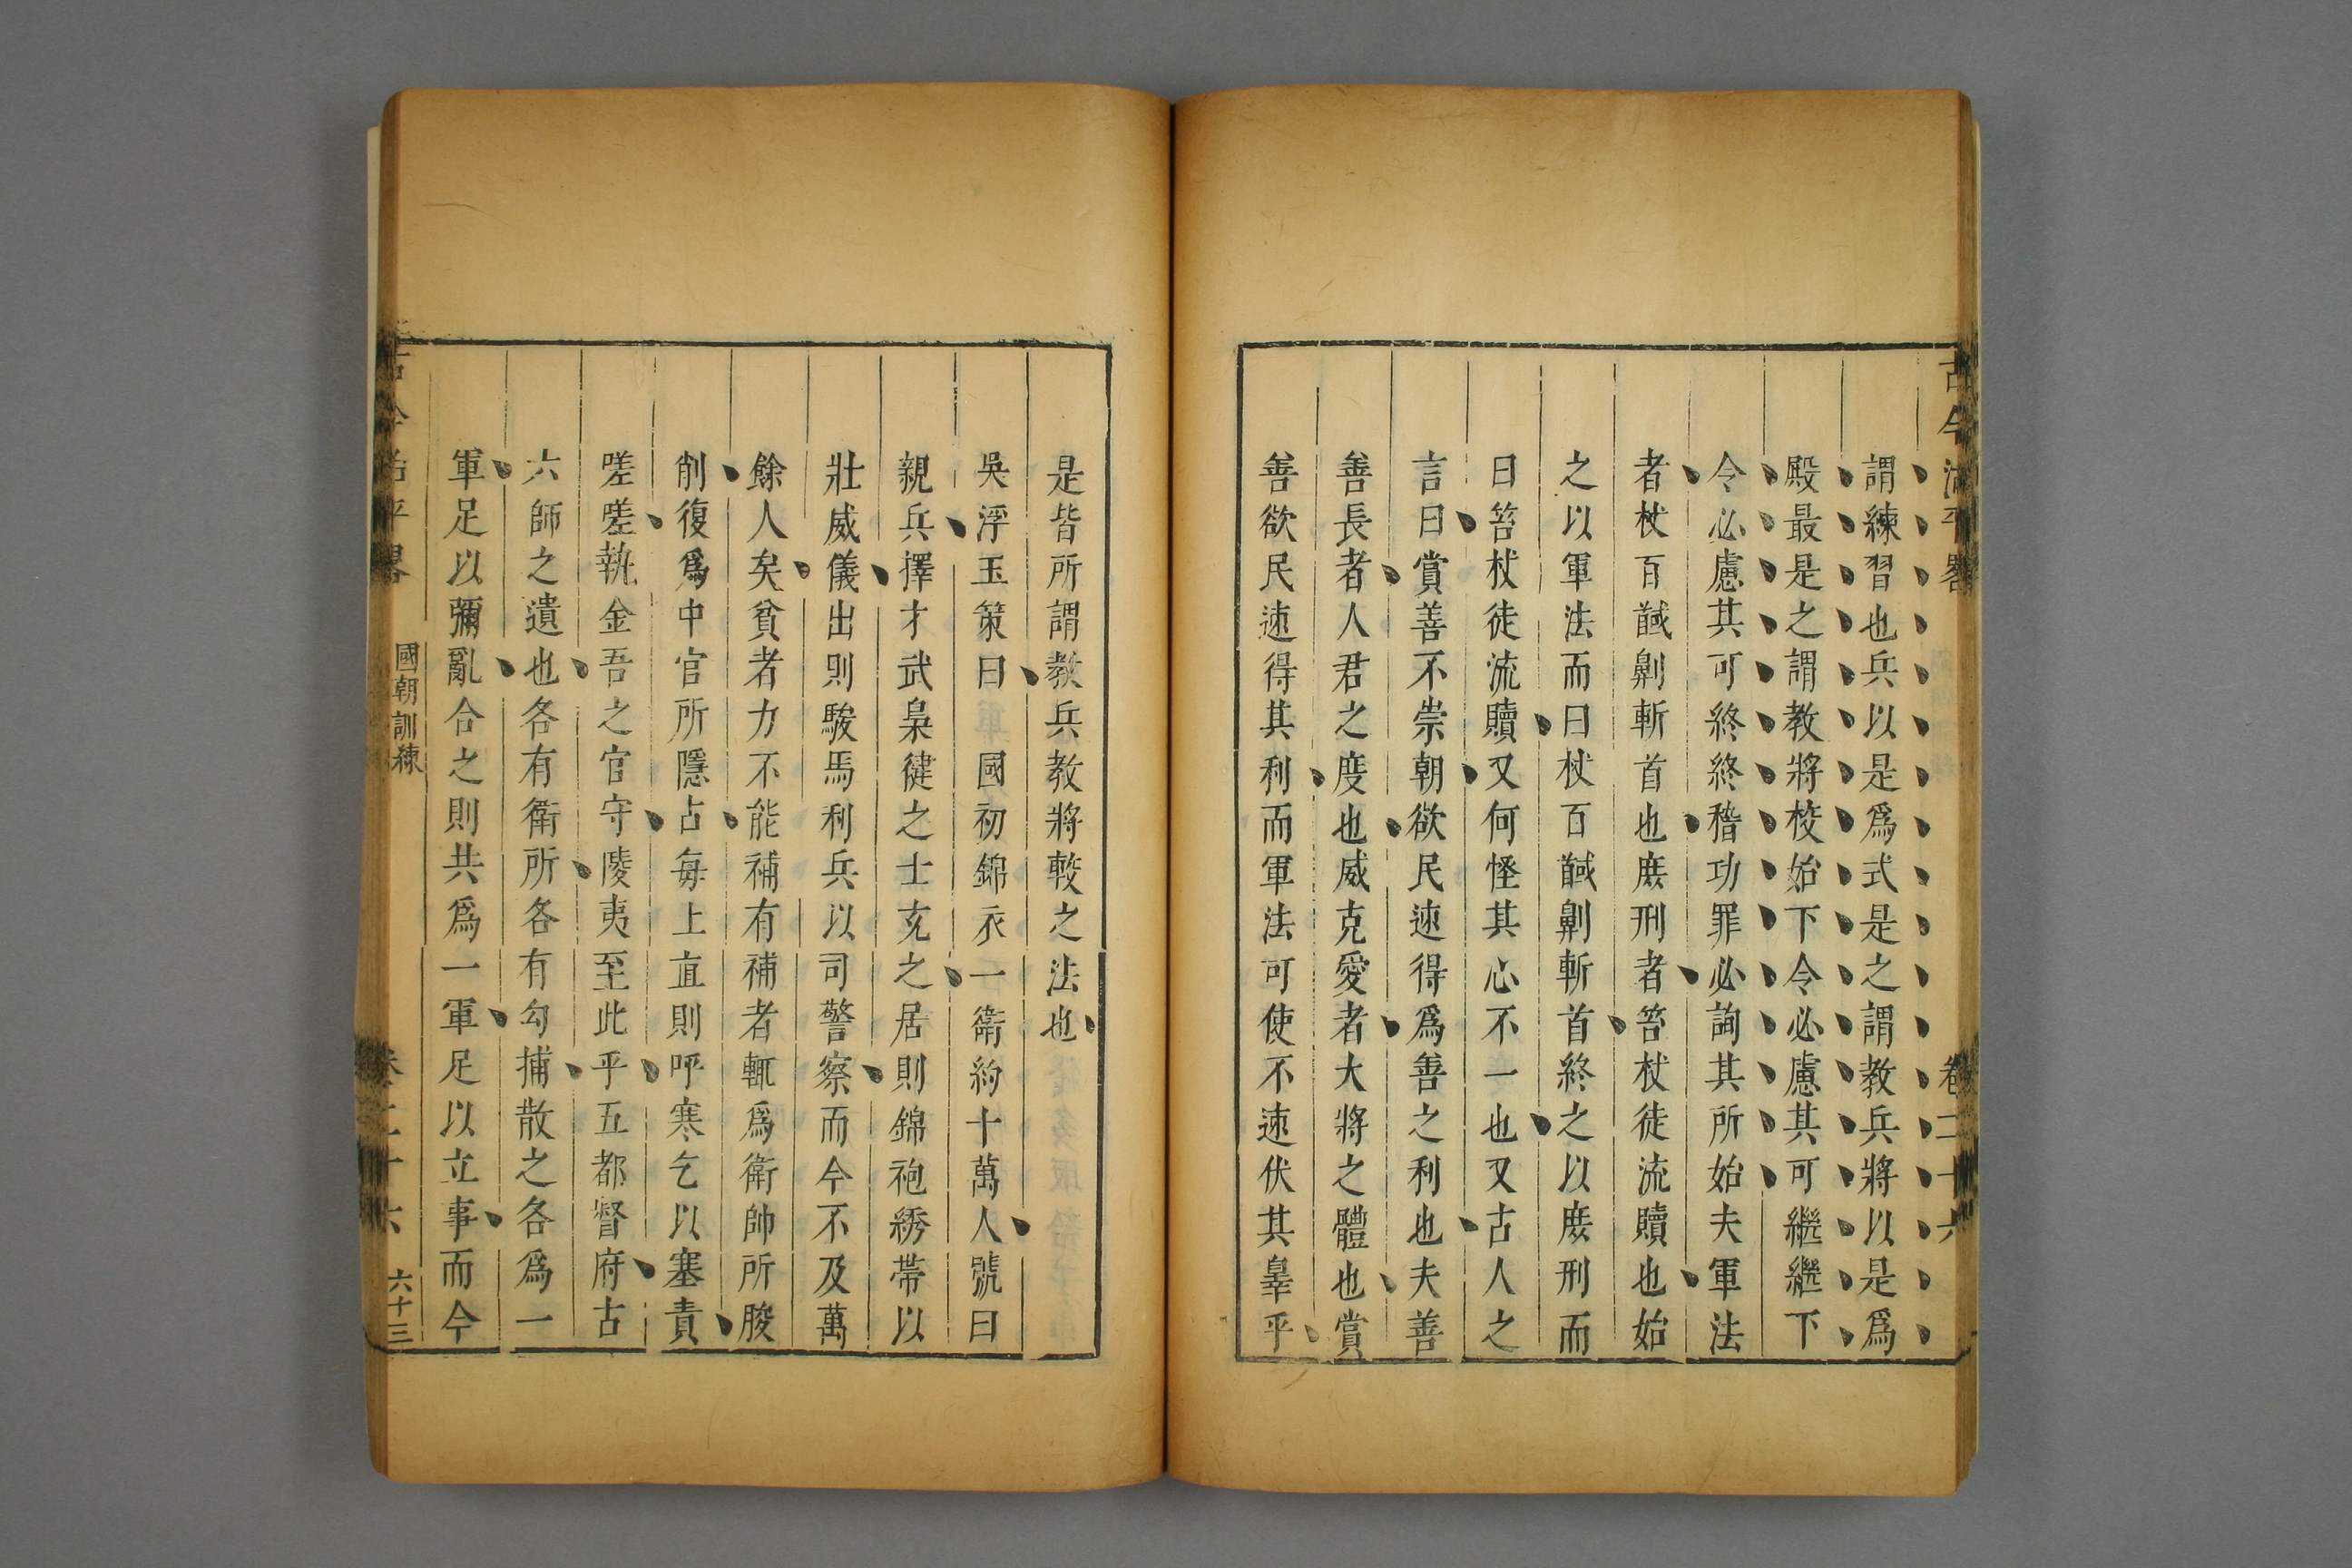 古今治平畧
卷二十六
謂練習也兵以是爲式是之謂教兵將以是爲
殿最是之謂教將校始下令必慮其可繼繼下
令必慮其可終終稽功罪必詢其所始夫軍法
者杖百馘劓斬首也庻刑者笞杖徒流贖也始
之以軍法而曰杖百馘劓斬首終之以庻刑而
曰笞杖徒流贖又何怪其心不一也又古人之
言曰賞善不崇朝欲民速得爲善之利也夫善
善長者人君之度也威克愛者大將之體也賞
善欲民速得其利而軍法可使不速伏其辠乎
是皆所謂教兵教將較之法也
吳浮玉策曰　國初錦衣一衛約十萬人號曰
親兵擇才武梟健之士充之居則錦袍綉帶以
壯威儀出則駿馬利兵以司警察而今不及萬
餘人矣貧者力不能補有補者輒爲衛帥所朘
削復爲中官所隱占每上直則呼寒乞以塞責
嗟嗟執金吾之官守陵夷至此乎五都督府古
六師之遺也各有衛所各有勾捕散之各爲一
軍足以彌亂合之則共爲一軍足以立事而今
古今治平畧
國朝訓練
卷二十六
六十三